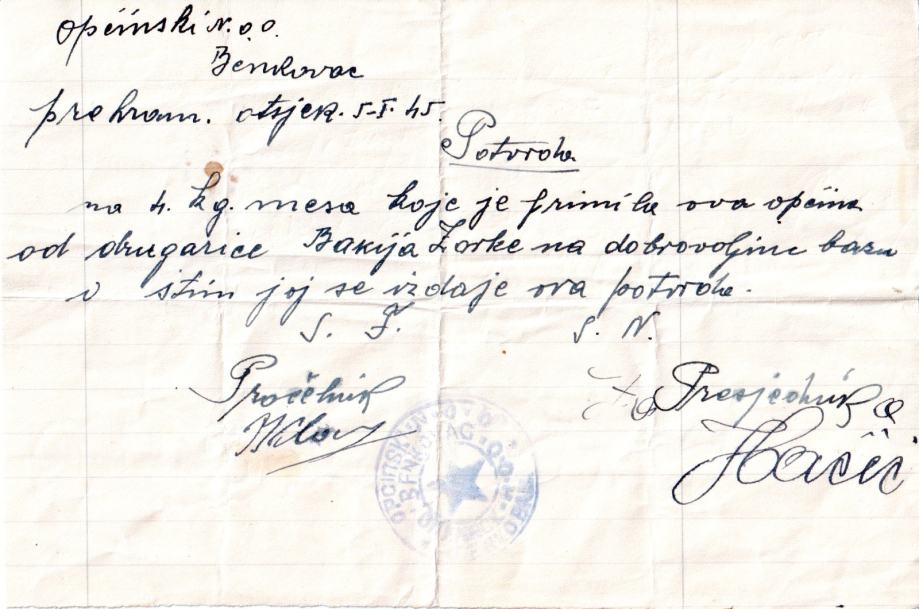 Općinski N.O.O.
Benkovac
prehram. otsjek. 5-I-45.
Potvrda
na 4. kg. mesa koje je primila ova općina
od drugarice Bakija Zorke na dobrovoljnu bazu
i stim joj se izdaje ova potvrda.
S. F. S. N.
Pročelnik Za Presjednika
OPĆINSKI N.O.O.
BENKOVAC